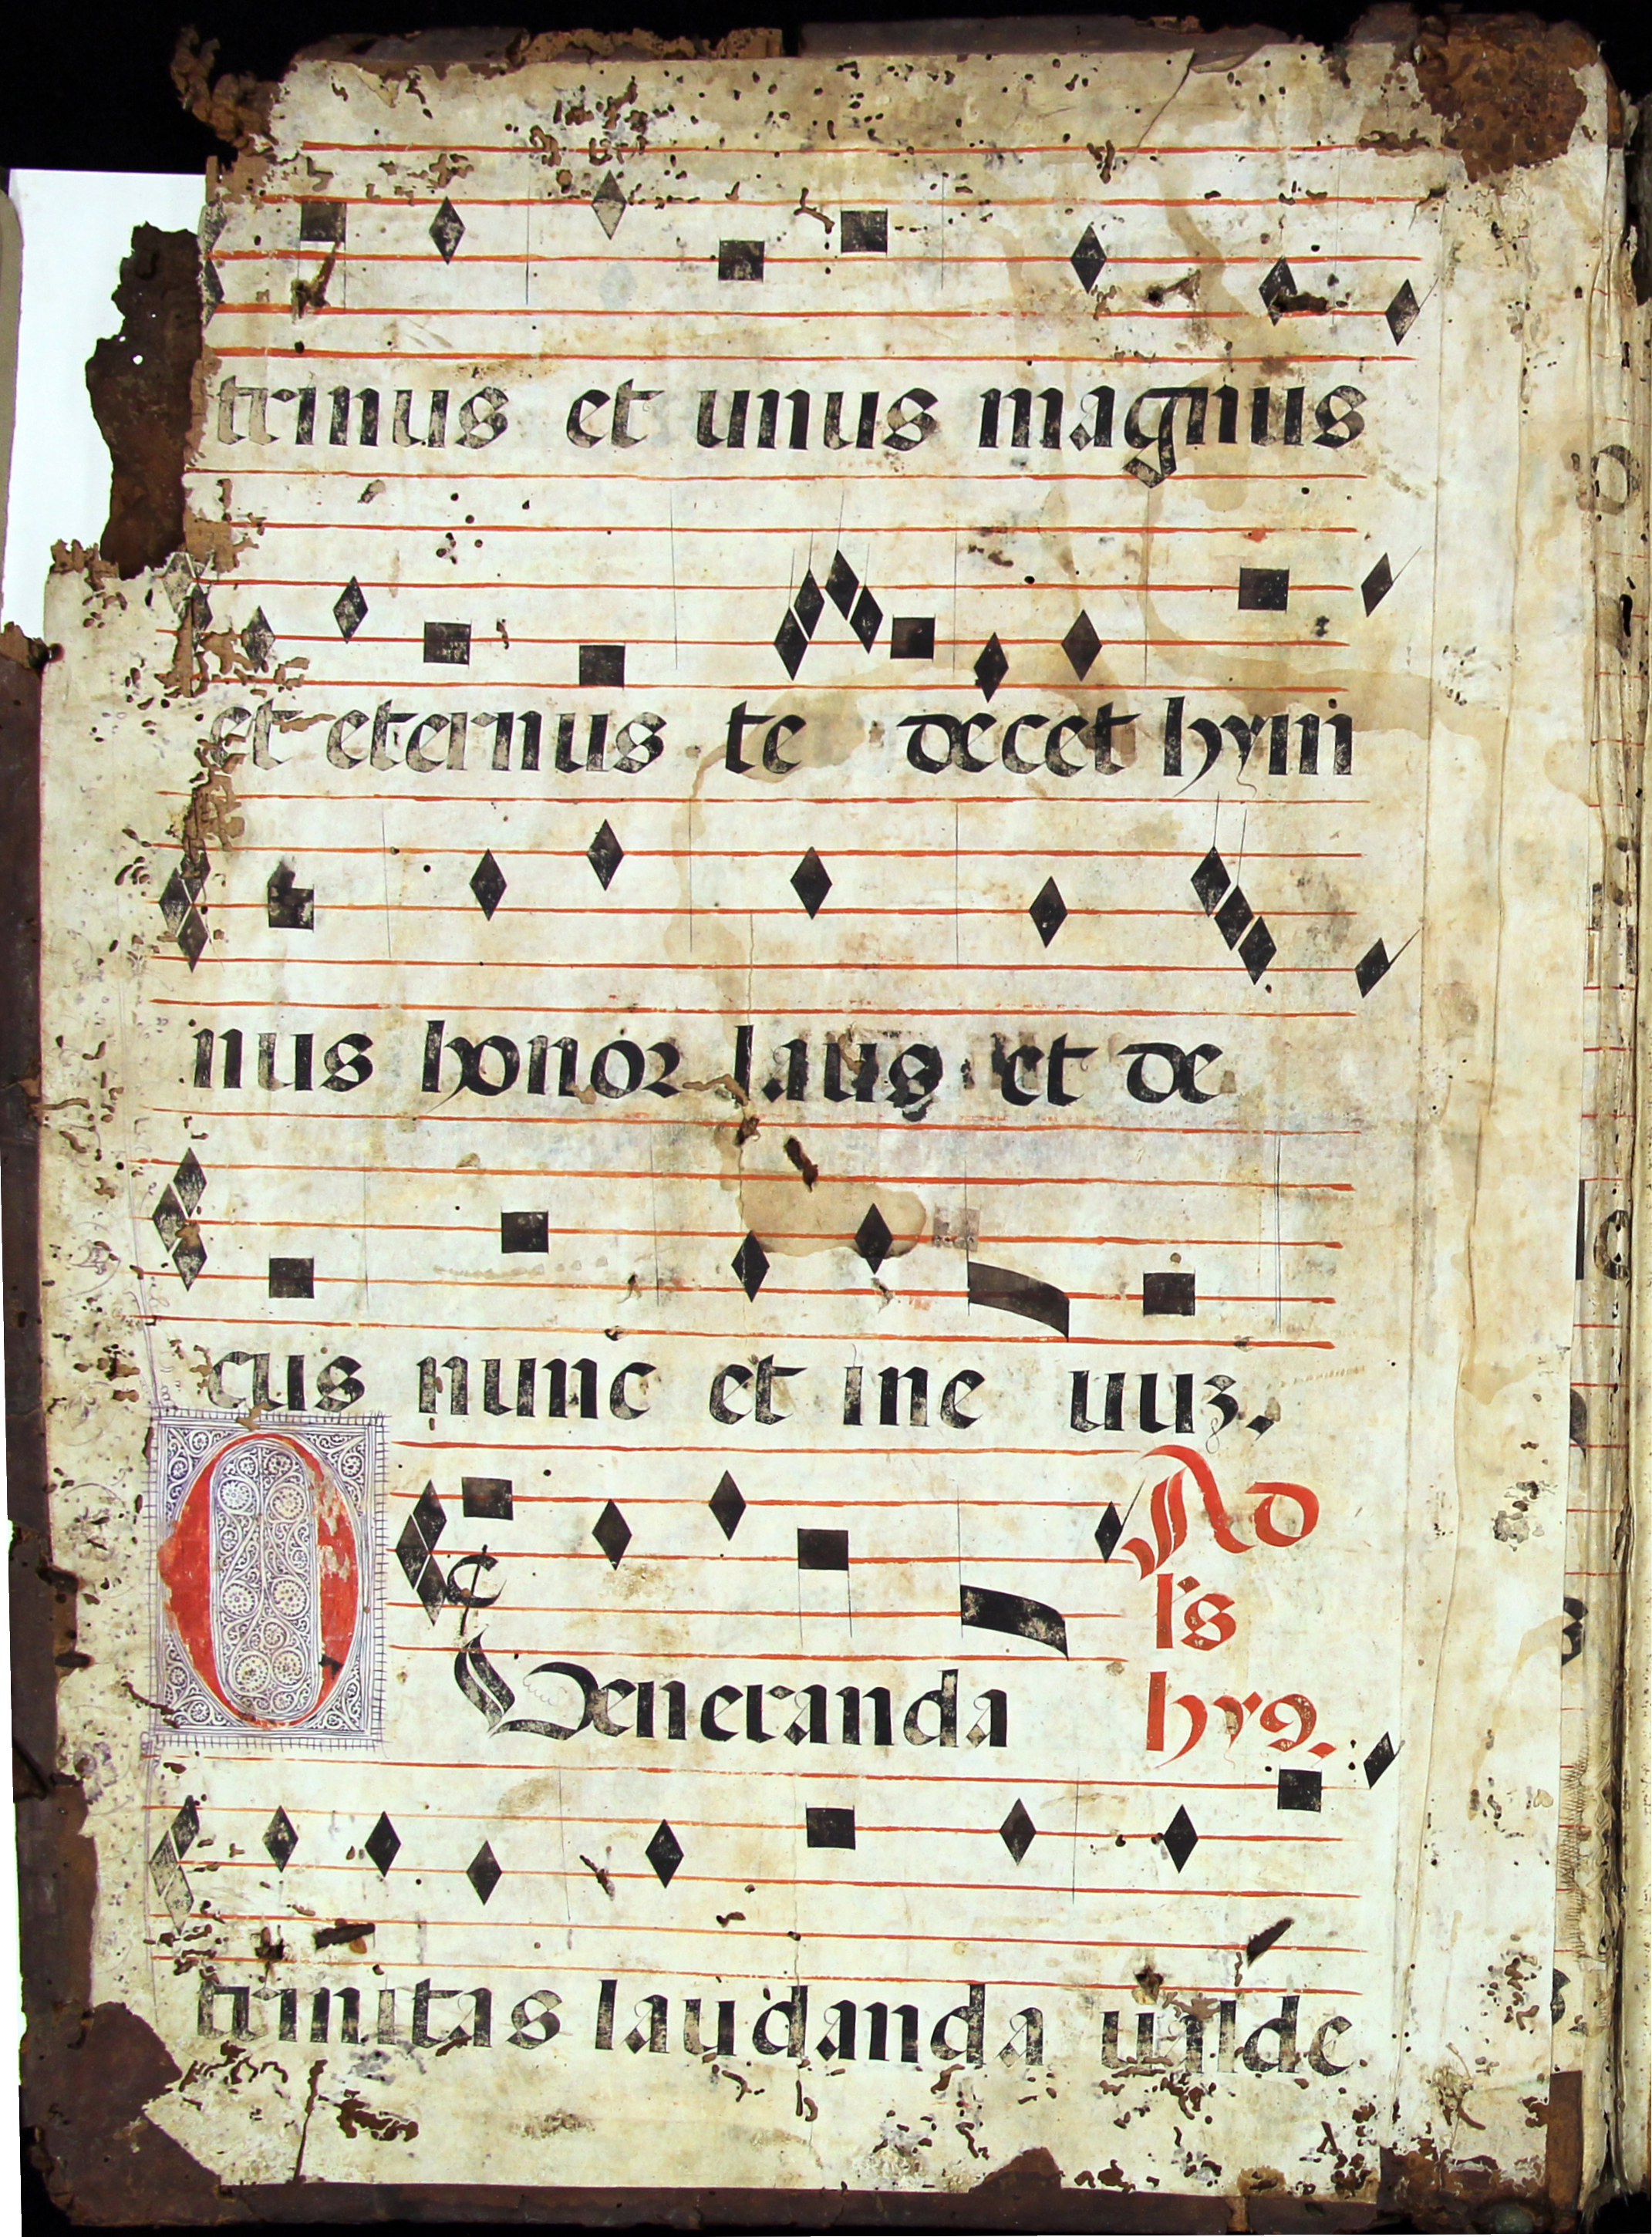 trinus et unus magnus
et eternus te decet hym
nus honor laus et de
cus nunc et ine uuz.
O Veneranda
Ad
l's
hy9.
trinitas laudanda ualde